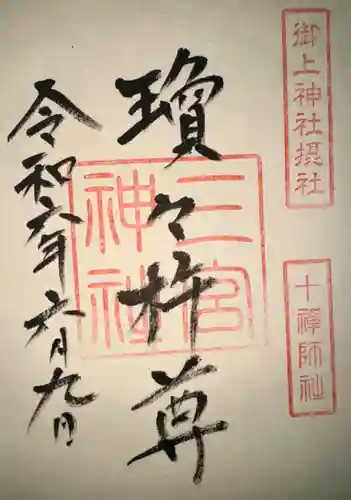 御上神社摂社
十禅師社
瓊々杵尊
三宮神社
令和六年六月九日